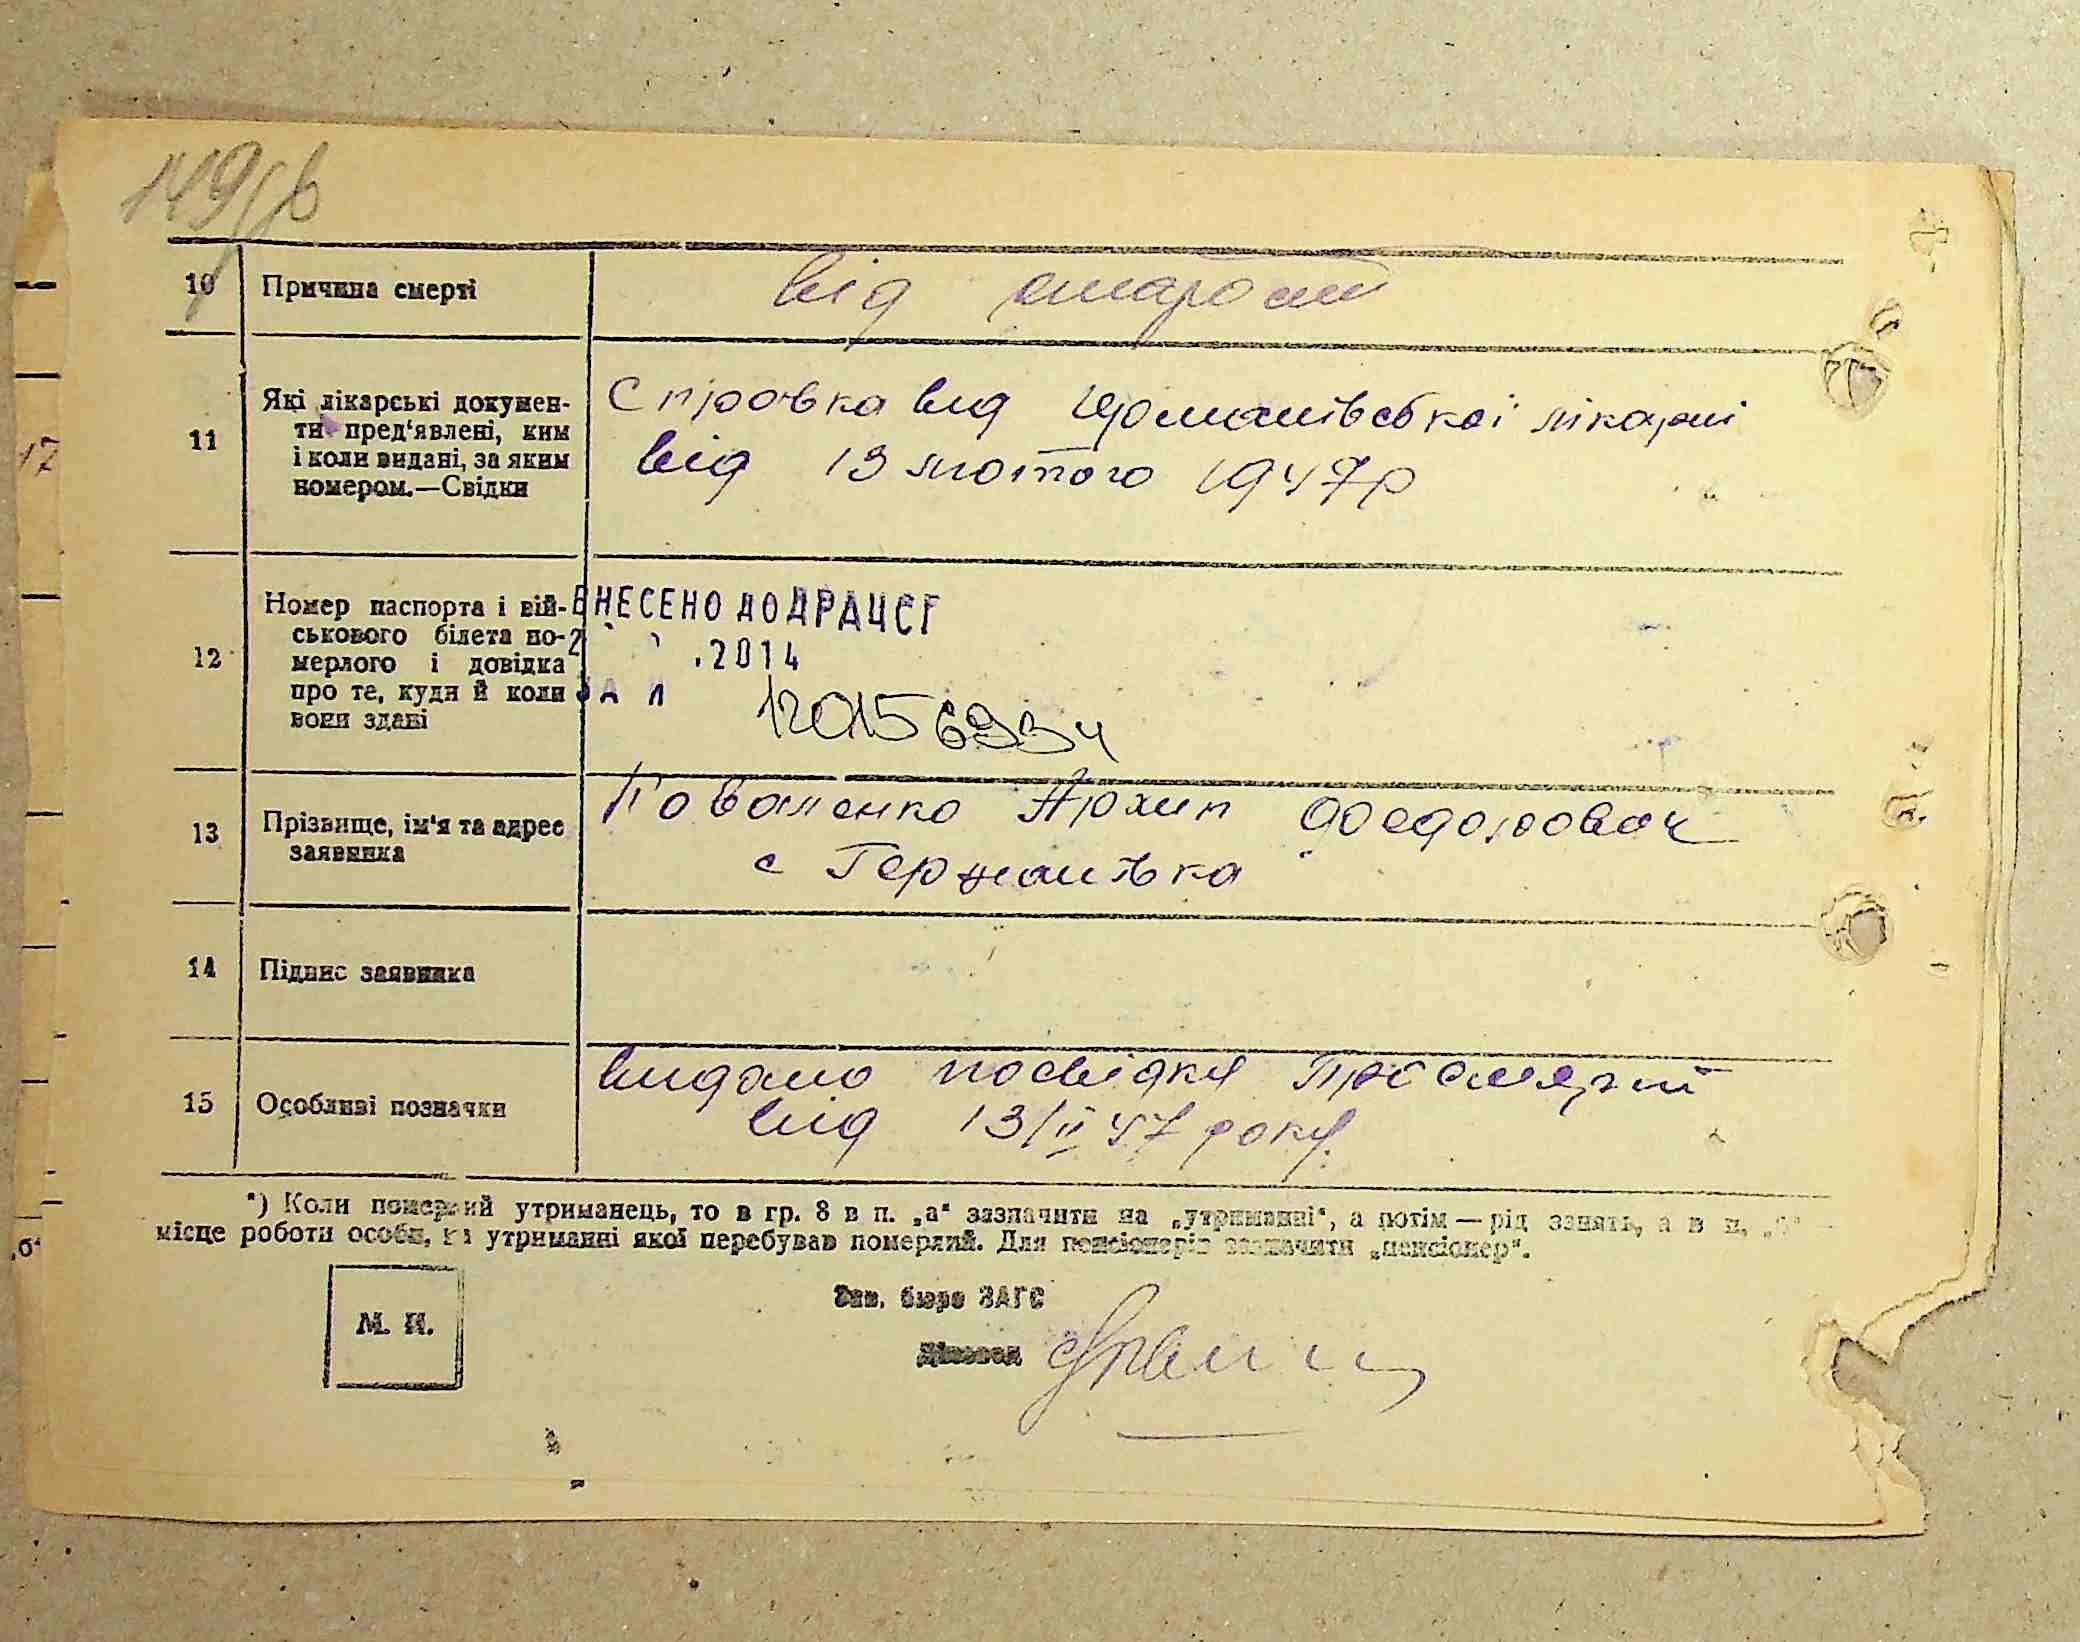 149зв
10 Причина смерті від старости
11 Які лікарські докумен-
ти пред'явлені, ким
і коли видані, за яким
номером.—Свідки
Справка від лікарні
від 13 лютого 1947р
12 Номер паспорта і вій-
ськового білета по-
мерлого і довідка
про те, куди й коли
вони здані
ВНЕСЕНО ДО ДРАЦСГ
2 .2014
ЗА №
12015693ч
13 Прізвище, ім'я та адрес
заявника
Коваленко Архип Фоедорович
с Германівка
14 Підпис заявника
15 Особливі позначки
видано посвідку про смерть
від 13/II 47 року.
*) Коли померлий утриманець, то в гр. 8 в п. „а“ зазначити на „утриманні“, а потім — рід занять, а в п. „б“ —
місце роботи особи, на утриманні якої перебував померлий. Для пенсіонерів зазначити „пенсіонер“.
М. П.
Зав. бюро ЗАГС
Діловод
17
„б“